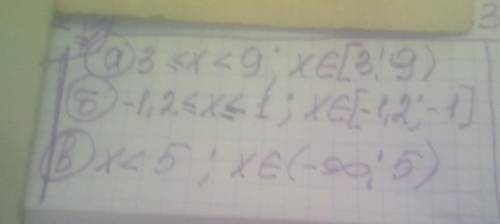 а) 3 ≤ x < 9; x∈[3; 9)
б) -1,2 ≤ x ≤ 1; x∈[-1,2; -1]
в) x < 5; x∈(-∞; 5)